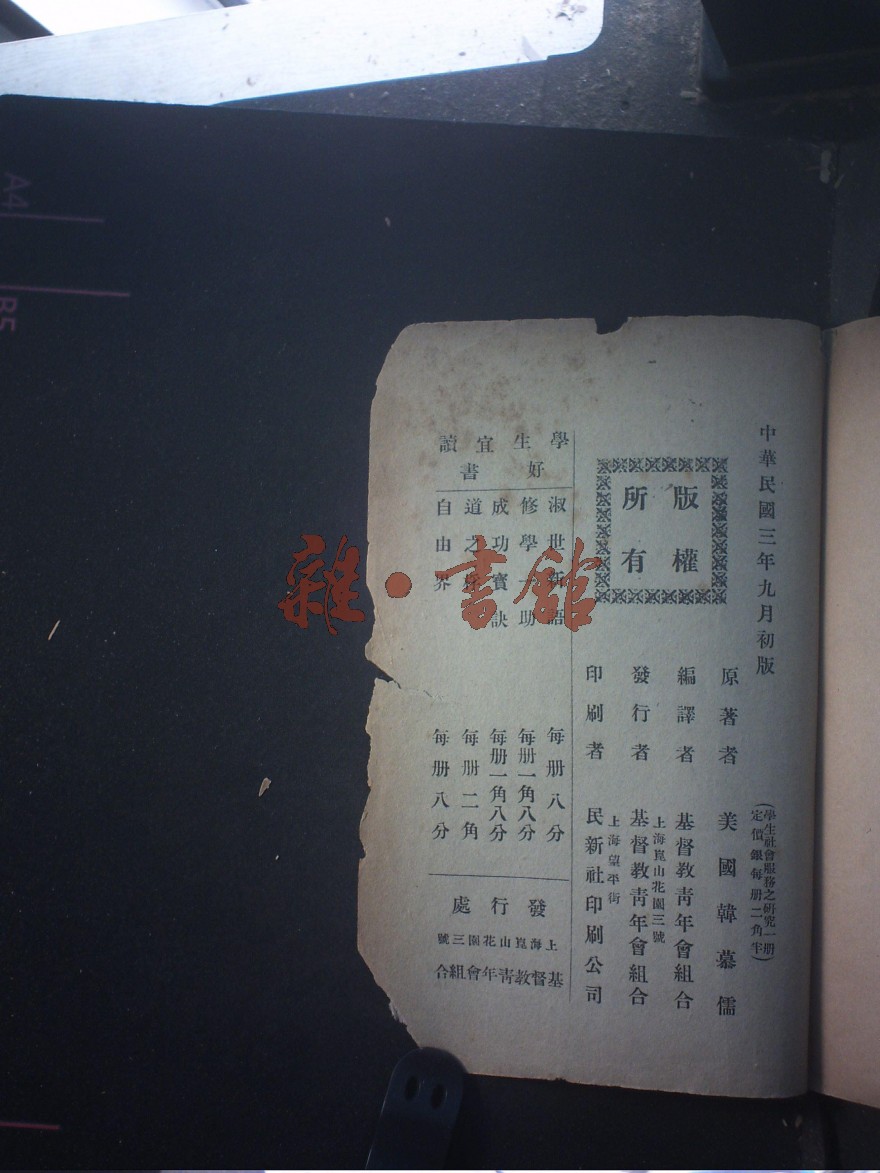 中華民國三年九月初版
(學生社會服務之研究一册
定價銀每册二角半)
版權
所有
原著者 美國韓慕儒
編譯者 基督教青年會組合
上海崑山花園三號
發行者 基督教青年會組合
上海望平街
印刷者 民新社印刷公司
學生宜讀
好書
淑世新語 每册八分
修學一助 每册一角八分
成功寶訣 每册一角八分
道之 每册二角
自由界 每册八分
發行處
上海崑山花園三號
基督教青年會組合
雜·書館
A4
B5